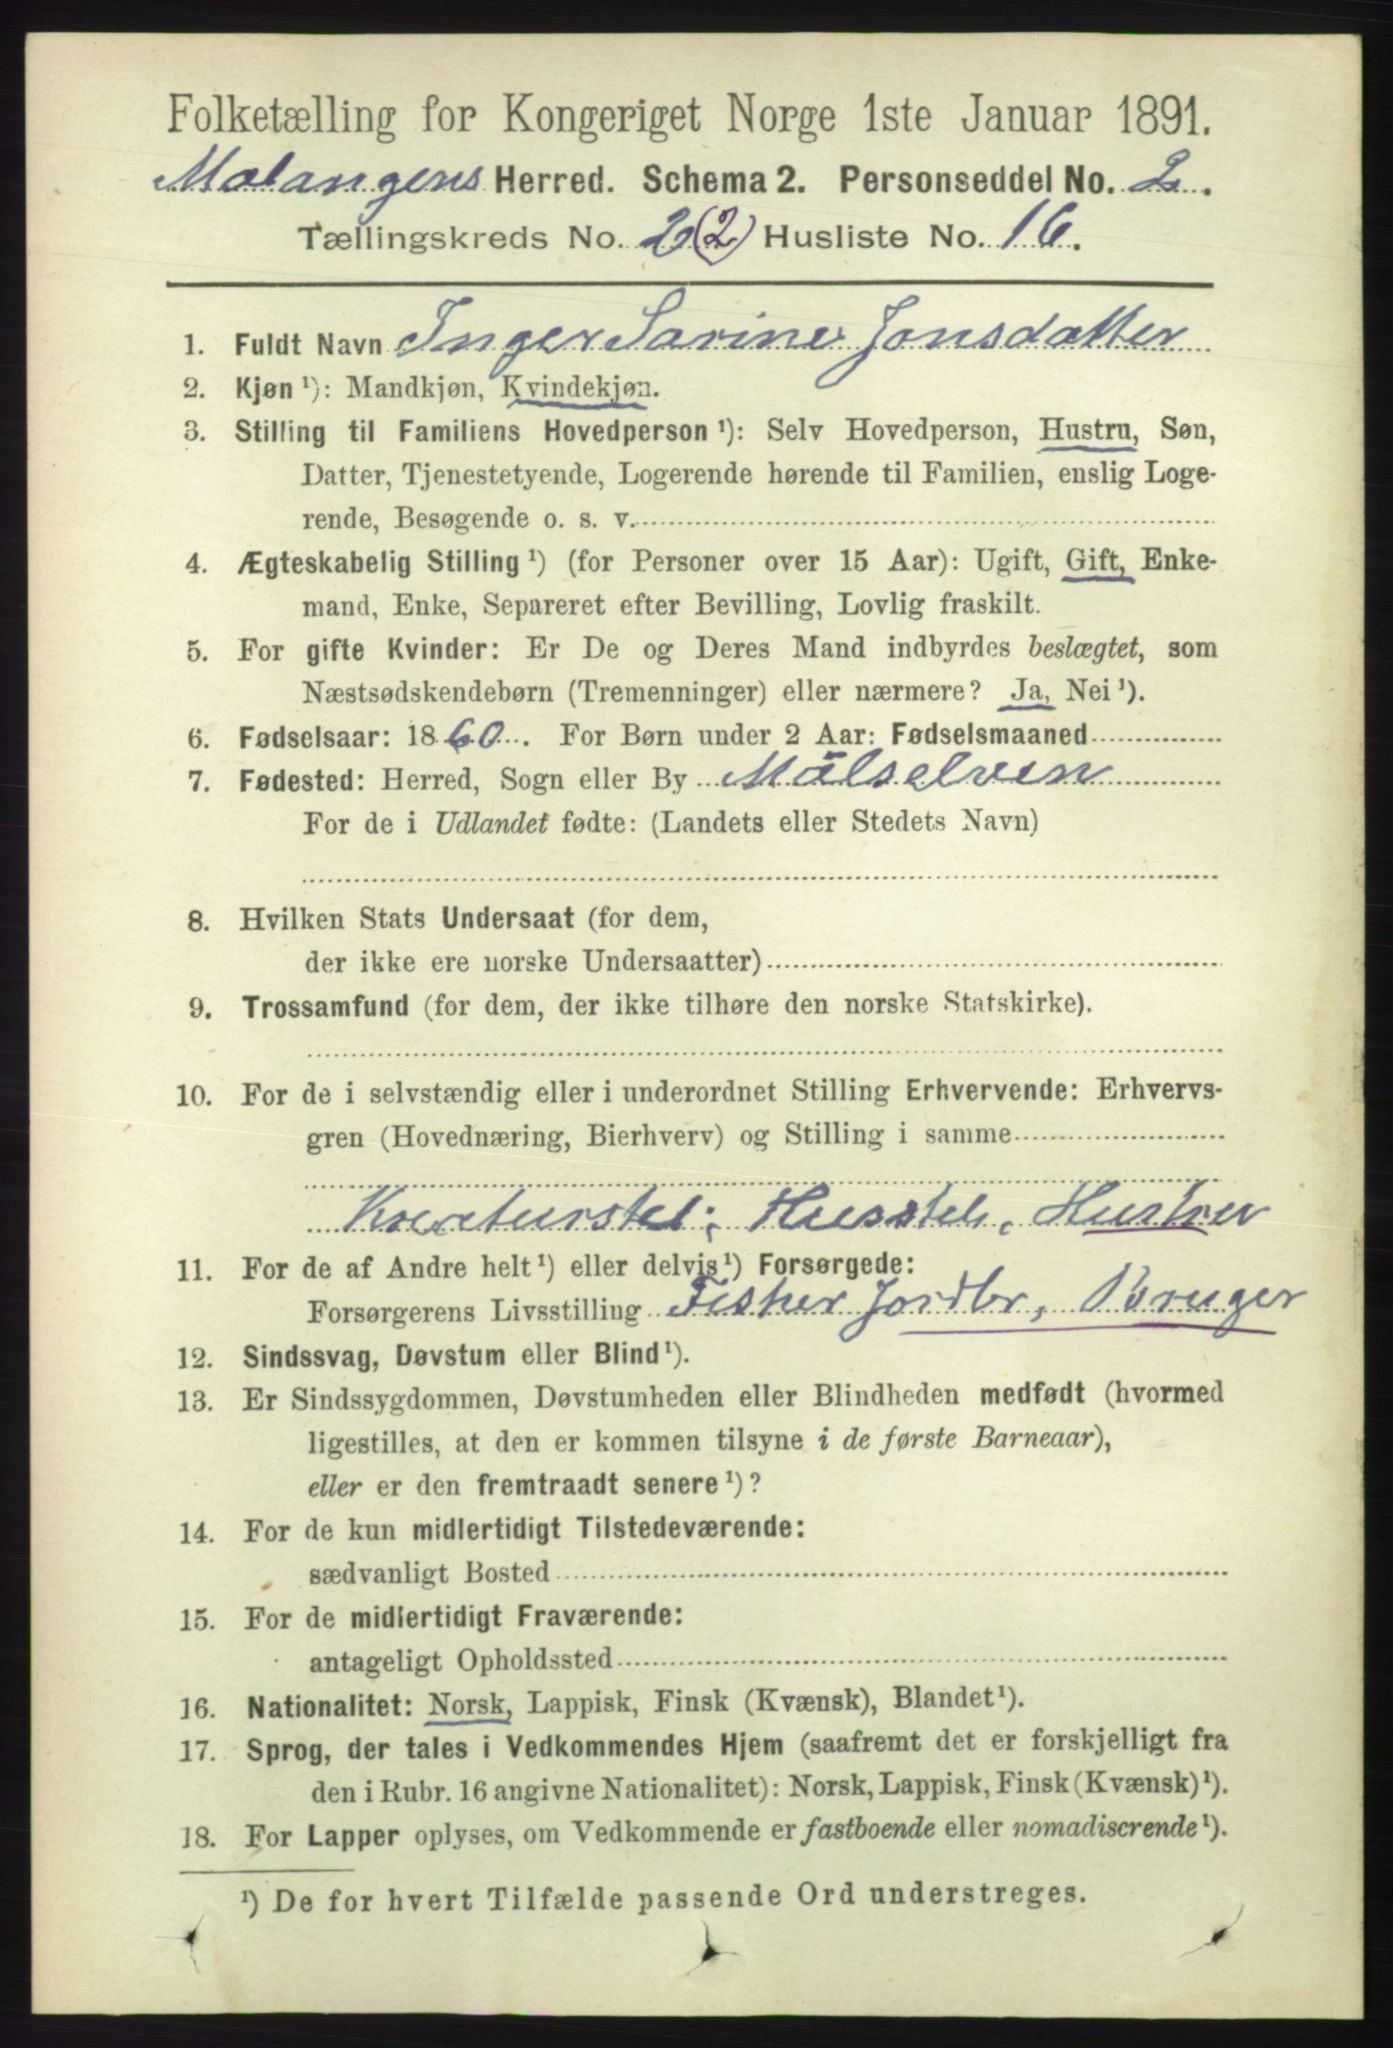 Folketælling for Kongeriget Norge 1ste Januar 1891.
Malangens Herred. Schema 2. Personseddel No. 2.
Tællingskreds No. 2 (2) Husliste No. 16.
1. Fuldt Navn Inger Sarine Jonsdatter
2. Kjøn ¹): Mandkjøn, Kvindekjøn.
3. Stilling til Familiens Hovedperson ¹): Selv Hovedperson, Hustru, Søn,
Datter, Tjenestetyende, Logerende hørende til Familien, enslig Loge-
rende, Besøgende o. s. v.
4. Ægteskabelig Stilling ¹) (for Personer over 15 Aar): Ugift, Gift, Enke-
mand, Enke, Separeret efter Bevilling, Lovlig fraskilt.
5. For gifte Kvinder: Er De og Deres Mand indbyrdes beslægtet, som
Næstsødskendebørn (Tremenninger) eller nærmere? Ja, Nei ¹).
6. Fødselsaar: 1860. For Børn under 2 Aar: Fødselsmaaned
7. Fødested: Herred, Sogn eller By Målselven
For de i Udlandet fødte: (Landets eller Stedets Navn)
8. Hvilken Stats Undersaat (for dem,
der ikke ere norske Undersaatter)
9. Trossamfund (for dem, der ikke tilhøre den norske Statskirke).
10. For de i selvstændig eller i underordnet Stilling Erhvervende: Erhvervs-
gren (Hovednæring, Bierhverv) og Stilling i samme
Kreaturstel; Husstel, Hustru
11. For de af Andre helt ¹) eller delvis ¹) Forsørgede:
Forsørgerens Livsstilling Fisker Jordbr, Bruger
12. Sindssvag, Døvstum eller Blind ¹).
13. Er Sindssygdommen, Døvstumheden eller Blindheden medfødt (hvormed
ligestilles, at den er kommen tilsyne i de første Barneaar),
eller er den fremtraadt senere ¹)?
14. For de kun midlertidigt Tilstedeværende:
sædvanligt Bosted
15. For de midlertidigt Fraværende:
antageligt Opholdssted
16. Nationalitet: Norsk, Lappisk, Finsk (Kvænsk), Blandet ¹).
17. Sprog, der tales i Vedkommendes Hjem (saafremt det er forskjelligt fra
den i Rubr. 16 angivne Nationalitet): Norsk, Lappisk, Finsk (Kvænsk) ¹).
18. For Lapper oplyses, om Vedkommende er fastboende eller nomadiserende ¹).
¹) De for hvert Tilfælde passende Ord understreges.